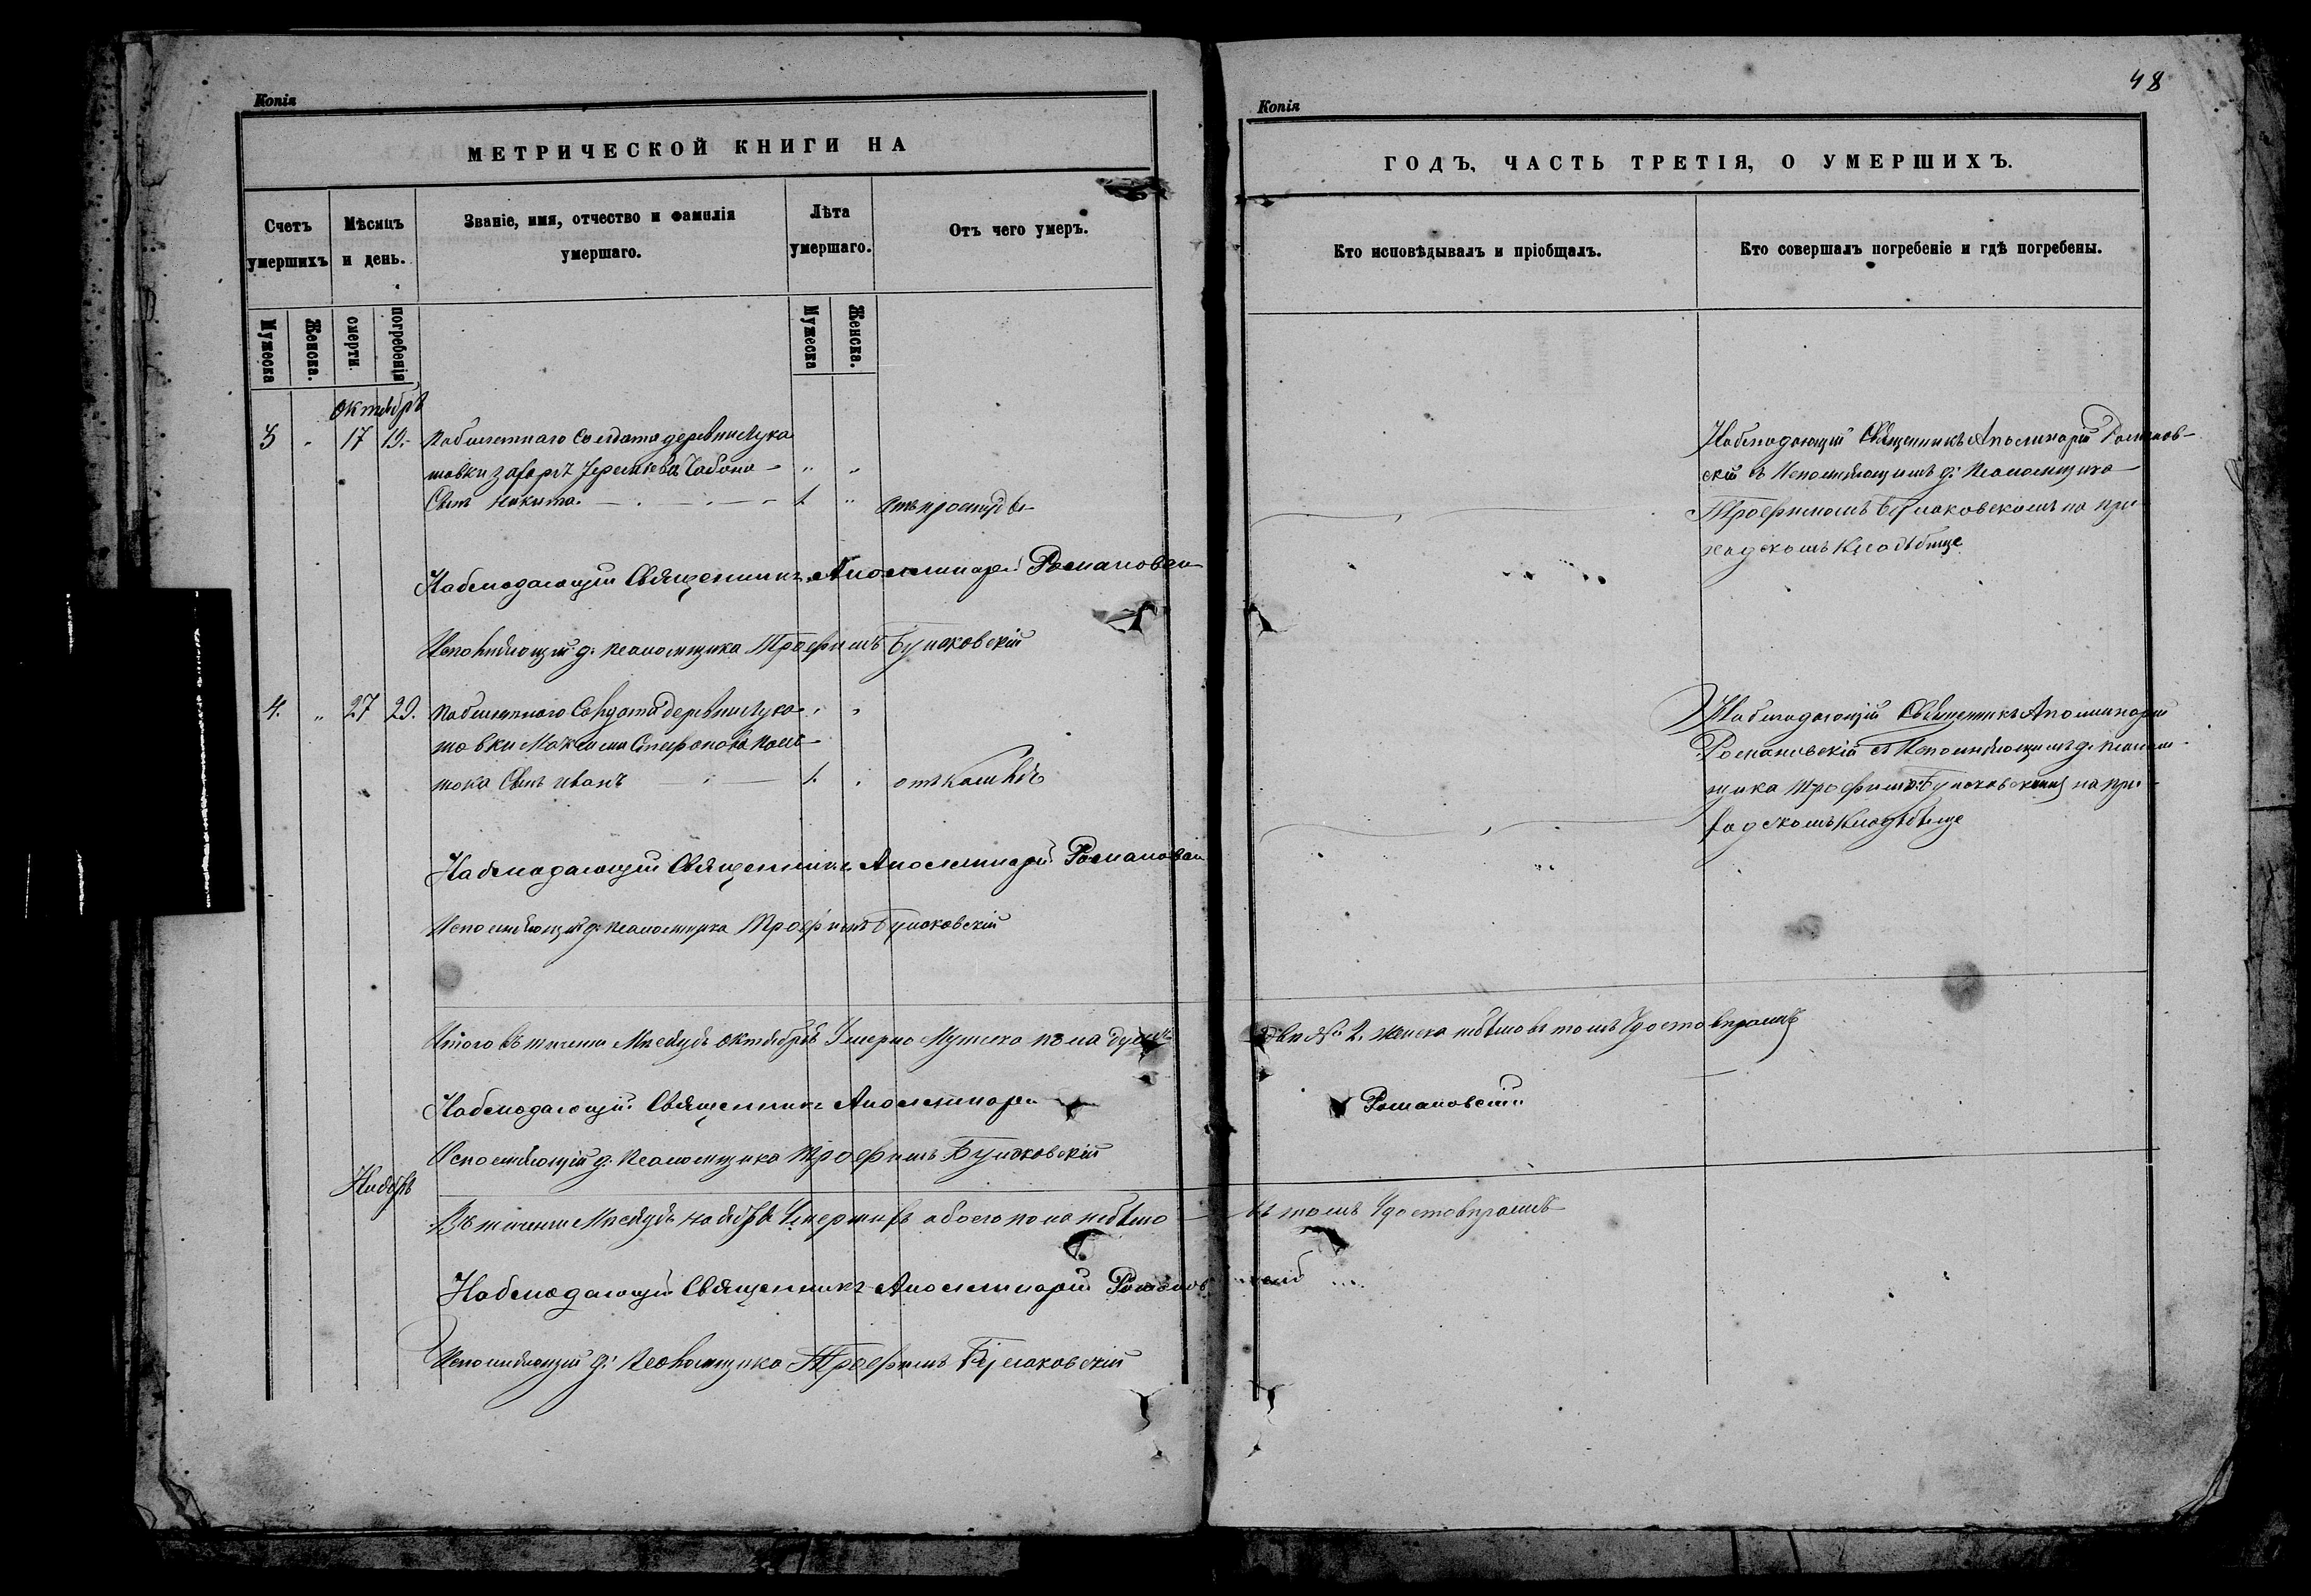 48
Копія
МЕТРИЧЕСКОЙ КНИГИ НА
Счетъ умершихъ
Мѣсяцъ и день.
Званіе, имя, отчество и фамилія умершаго.
Лѣта умершаго.
Отъ чего умеръ.
Мужеска
Женска.
смерти.
погребенія
Мужеска
Женска.
Октябрь
3 " 17 19. Кабинетнаго Солдата деревни Лука
товки Захаріи Іереміева
Сынъ Никита 1. " отъ простуды
Наблюдающій Священникъ Аполлинарій Романовскій
Исполняющій д. псаломщика Трофимъ
4. " 27 29. деревни Лука
товки Максима Стефанова
Сынъ Иванъ 1. отъ кашля
Наблюдающій Священникъ Аполлинарій Романовскій
Исполняющій д. псаломщика Трофимъ
Итого въ теченіи Мѣсяца Октября Умерло Мужеска пола душъ
Наблюдающій Священникъ Аполлинарій
Исполняющій д. псаломщика Трофимъ
Ноябрь
Въ теченіи Мѣсяца Ноября Умершихъ обоего пола небыло
Наблюдающій Священникъ Аполлинарій
Исполняющій д. псаломщика Трофимъ
Копія
ГОДЪ, ЧАСТЬ ТРЕТІЯ, О УМЕРШИХЪ.
Кто исповѣдывалъ и пріобщалъ.
Кто совершалъ погребеніе и гдѣ погребены.
Наблюдающій Священникъ Аполинарій Романов-
скій съ Исполняющимъ д. Псаломщика
Трофимомъ на при
ходскомъ кладбище
Наблюдающій Священникъ Аполинарій
Романовскій съ Исполняющимъ д. псалом-
щика Трофимомъ на при-
ходскомъ кладбище
2. женска небыло въ томъ удостовѣряемъ
Романовскій
въ томъ удостовѣряемъ